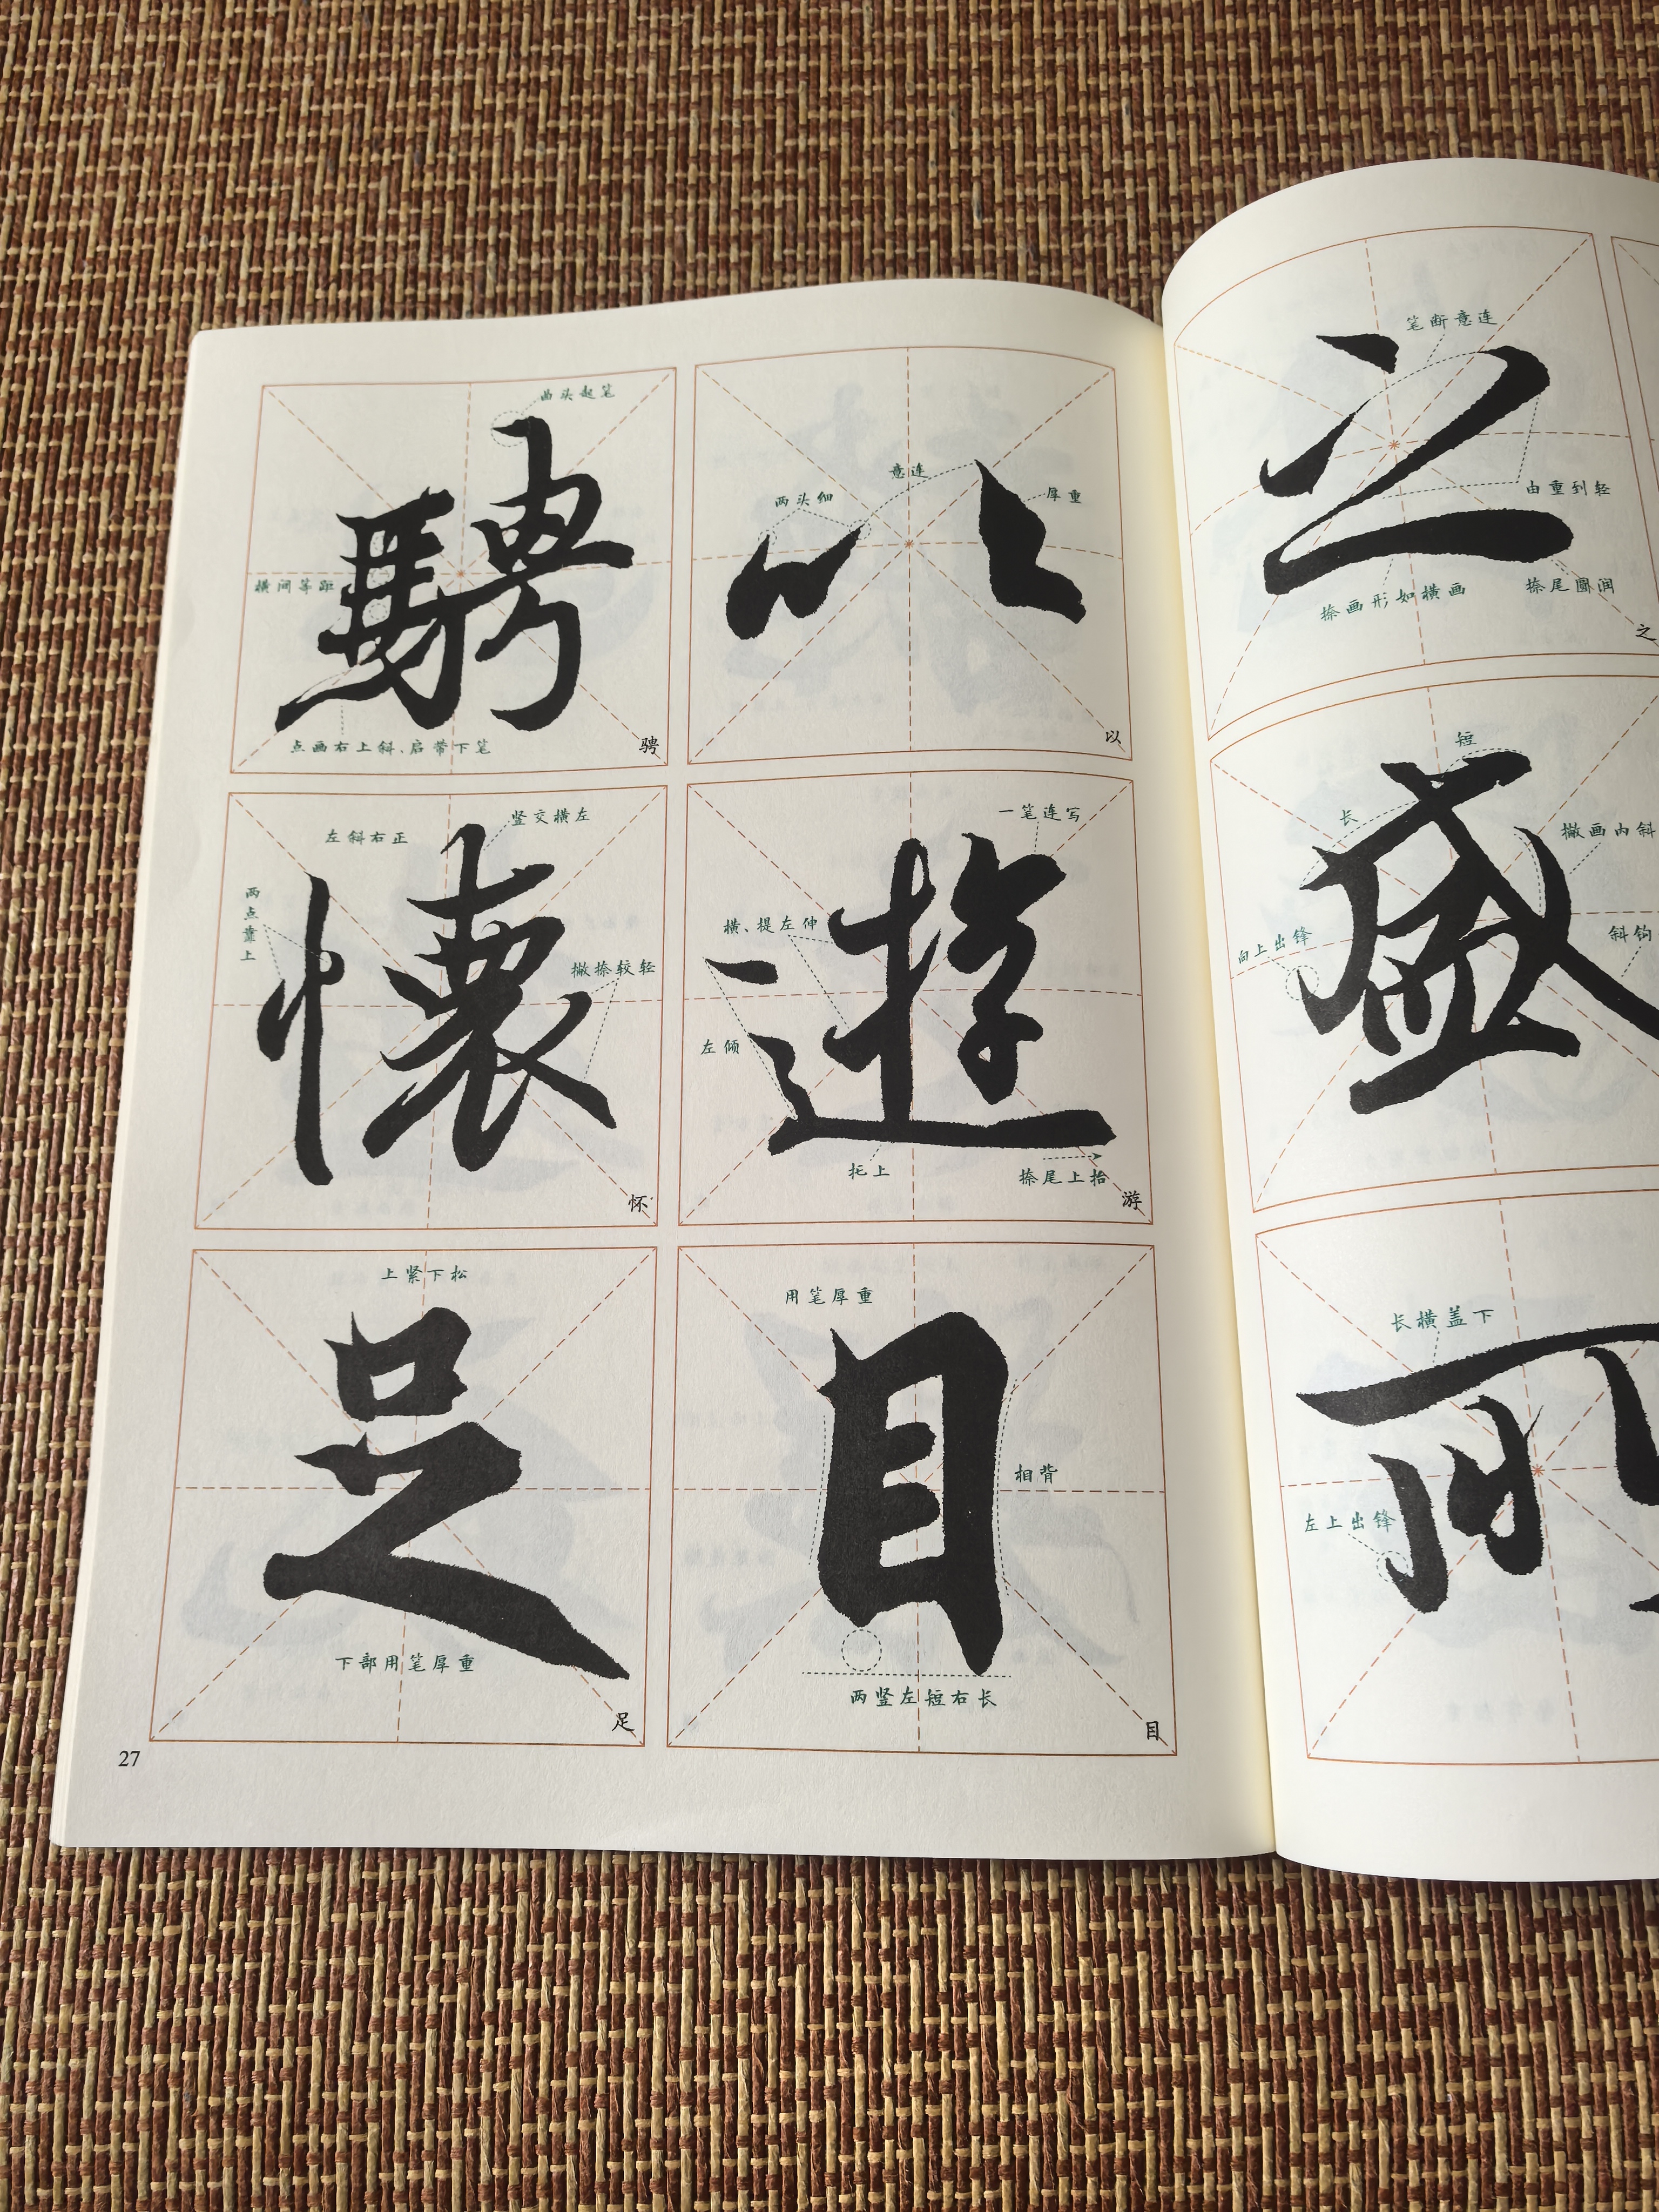 曲头起笔
騁
横间等距
点画右上斜、启带下笔
骋
意连
两头细
厚重
以
以
左斜右正
竖交横左
两点靠上
懷
撇捺较轻
怀
一笔连写
横、提左伸
遊
左倾
托上
捺尾上抬
游
上紧下松
足
下部用笔厚重
足
用笔厚重
目
相背
两竖左短右长
目
27
笔断意连
之
由重到轻
捺画形如横画
捺尾圆润
之
短
长
撇画内斜
盛
向上出锋
斜钩
长横盖下
左上出锋